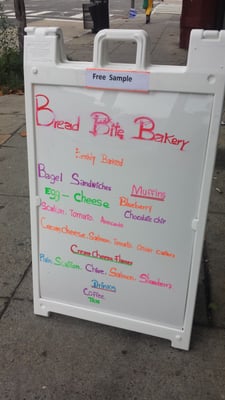 Free Sample
Bread Bite Bakery
Freshly Baked
Bagel Sandwiches
Muffins
Egg - Cheese
Blueberry
Chocolate chip
Scallion, Tomato, Avocado
Cream cheese, Salmon, Tomato, Onion, capers
Cream Cheese Flavors
Plain, Scallion, Chive, Salmon, Strawberry
Drinks
Coffee
Tea